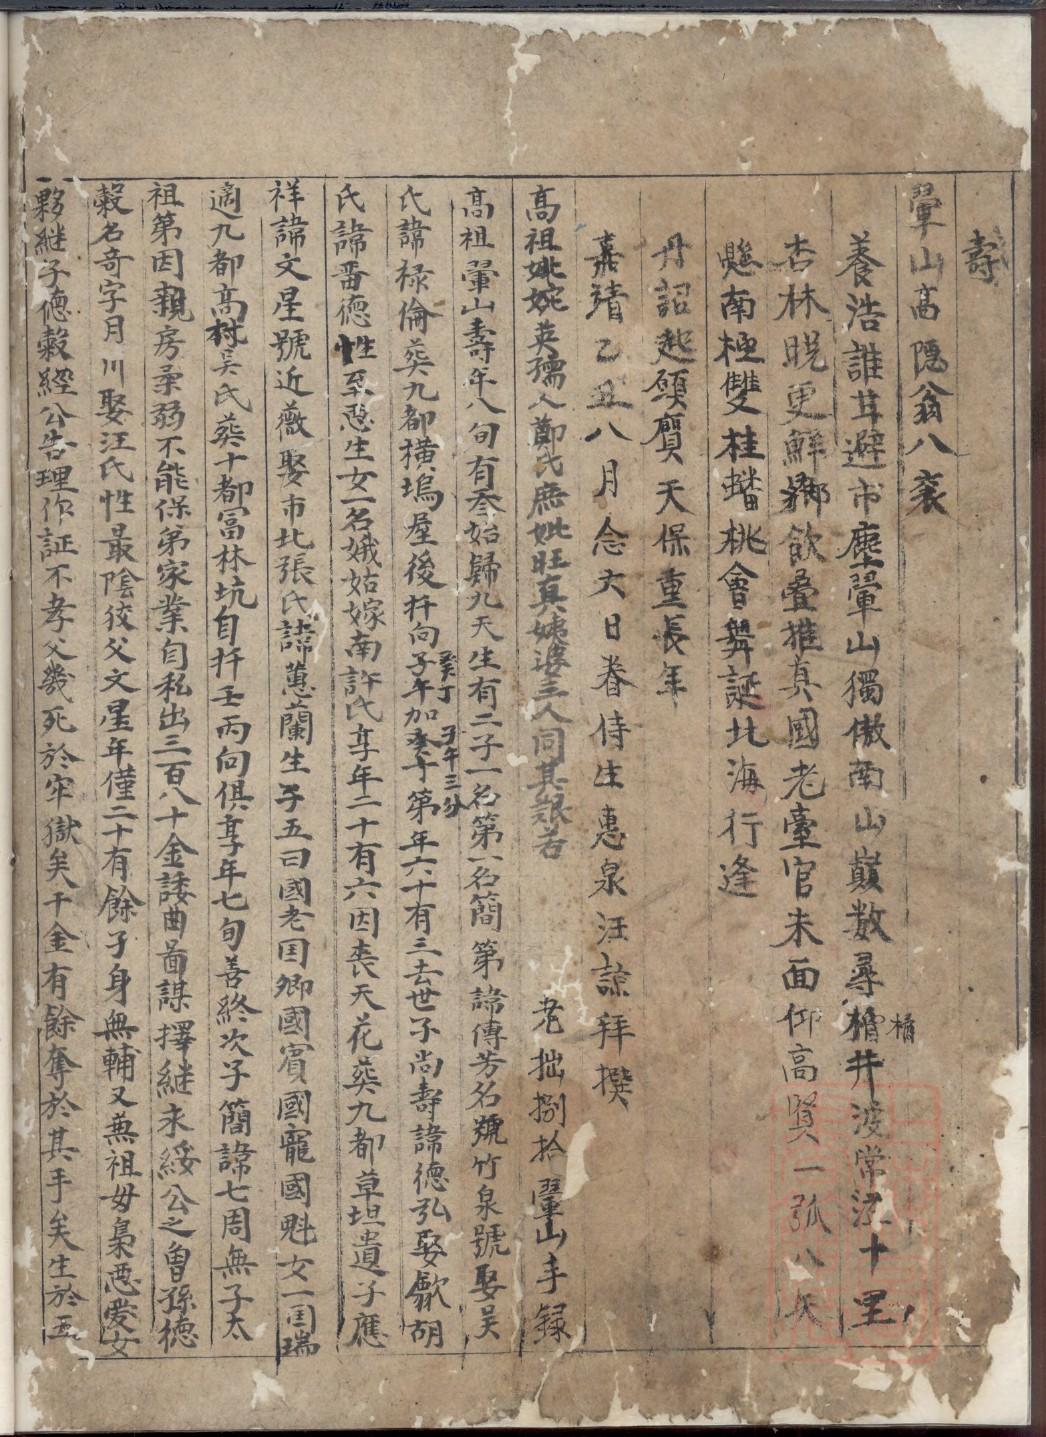 壽
翬山高隱翁八袠
養浩誰甘避市塵翬山獨傲南山巔数尋橘井波常沃十里
橘
杏林晛更鮮鄉飲疊推真國老臺官未面仰高賢一弧八矢
懸南極雙桂蟠桃會舞誕北海行逢
丹詔起願賡天保重長年
嘉靖乙丑八月念六日眷侍生惠泉汪諒拜撰
高祖妣婉英孺人鄭氏庶妣旺真姨婆三人同其艱若
老拙捌拾翬山手録
高祖翬山壽年八旬有叁始歸九天生有二子一名第一名簡第諱傳芳名號竹泉號娶吴
氏諱禄倫葬九都橫塢屋後扦向子午加癸丁第年六十有三去世子尚壽諱德弘娶歙胡
癸丁子午三分
氏諱番德性至惡生女一名娥姑嫁南許氏享年二十有六因丧天花葬九都草坦遺子應
祥諱文星號近薇娶市北張氏諱蕙蘭生子五曰國老囯卿國賓國寵國魁女一囯瑞
適九都高村吴氏葬十都富林坑自扦壬丙向俱享年七旬善終次子簡諱七周無子太
祖第因親房柔弱不能保第家業自私出三百八十金諉曲啚謀擇継永綏公之曾孫德
穀名奇字月川娶汪氏性最陰狡父文星年僅二十有餘孑身無輔又蕪祖母梟惡愛女
夥継子德穀經公告理作証不孝父幾死於牢獄矣千金有餘奪於其手矣生於五